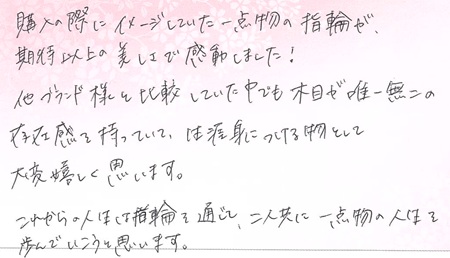 購入の際にイメージしていた一点物の指輪が、
期待以上の美しさで感動しました！
他ブランド様と比較していた中でも木目が唯一無二の
存在感を持っていて、生涯身につける物として
大変嬉しく思います。
これからの人生は指輪を通じて、二人共に一点物の人生を
歩んでいこうと思います。